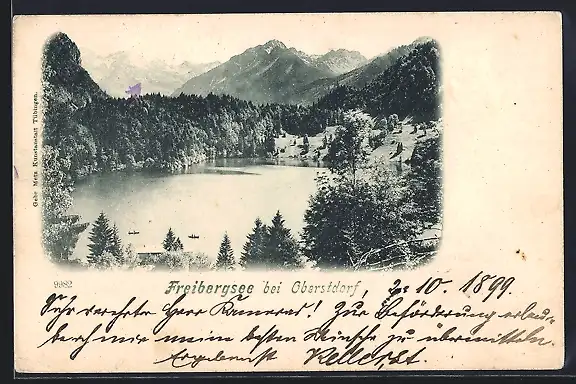 Gebr Metz Kunstanstalt Tübingen.
9982
Freibergsee bei Oberstdorf,
2. 10. 1899
Sehr verehrter Herr Kamerad! Zur Beförderung erlau-
be ich mir meine besten Wünsche zu übermitteln.
Ergebenst